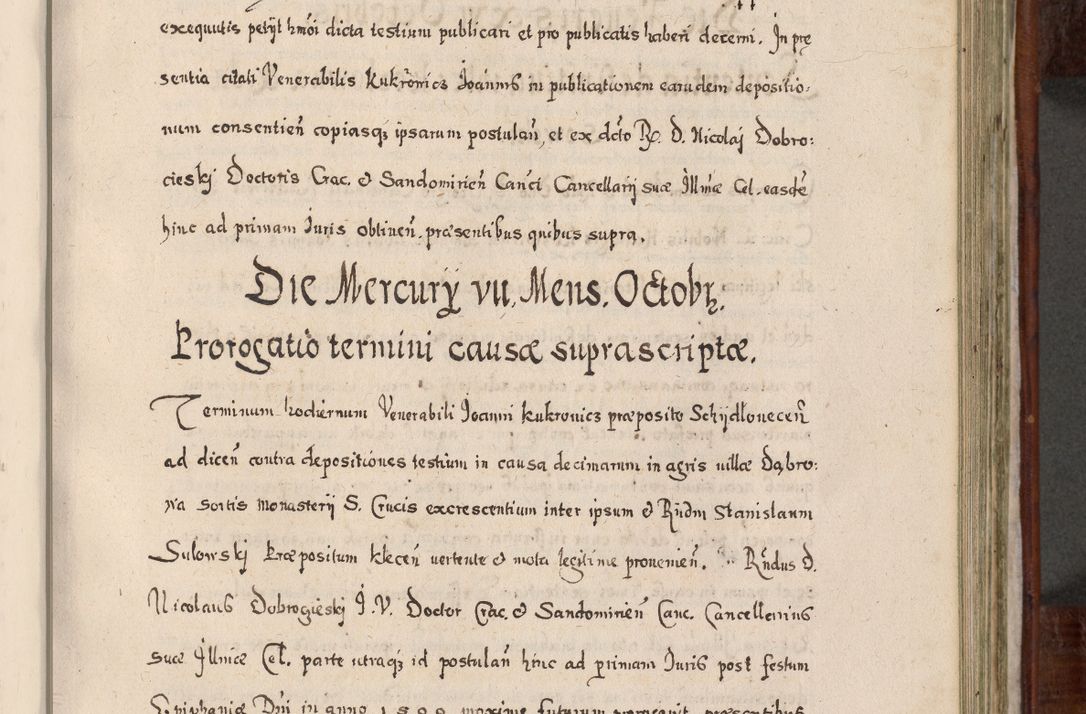 exequutis petijt hmói dicta testium publicari et pro publicatis haberi decerni. In præ
sentia citati Venerabilis Kukrowicz Joannis in publicationem earudem depositio:
num consentień copiasq; ipsarum postulań, et ex dcto R. D. Nicolaj Dobro:
cieskj Doctoris Crac. & Sandomirień Canci Cancellarij suæ Illmæ Cel. easdē
hinc ad primam Juris obtineń. præsentibus quibus supra.
Die Mercurij vii. Mens. Octobr.
Prorogatio termini causæ suprascriptæ.
Terminum hodiernum Venerabili Joanni Kukrowicz præposito Schijdłoveceń
ad diceń contra depositiones testium in causa decimarum in agris villæ Dąbro:
wa sortis monasterij S. Crucis excrescentium inter ipsum & Rńdm Stanislaum
Sulowskj Præpositum Kleceń vertente & mota legitime provenień. Rńdus D.
Nicolaus Dobrogieskj J. V. Doctor Crac. & Sandomirień Canc. Cancellerius
suæ Illmæ Cel. parte utraq; id postulań hinc ad primam Juris post festum
Epiphaniæ Dńi in anno maxime futurum prorogavit præsentibus